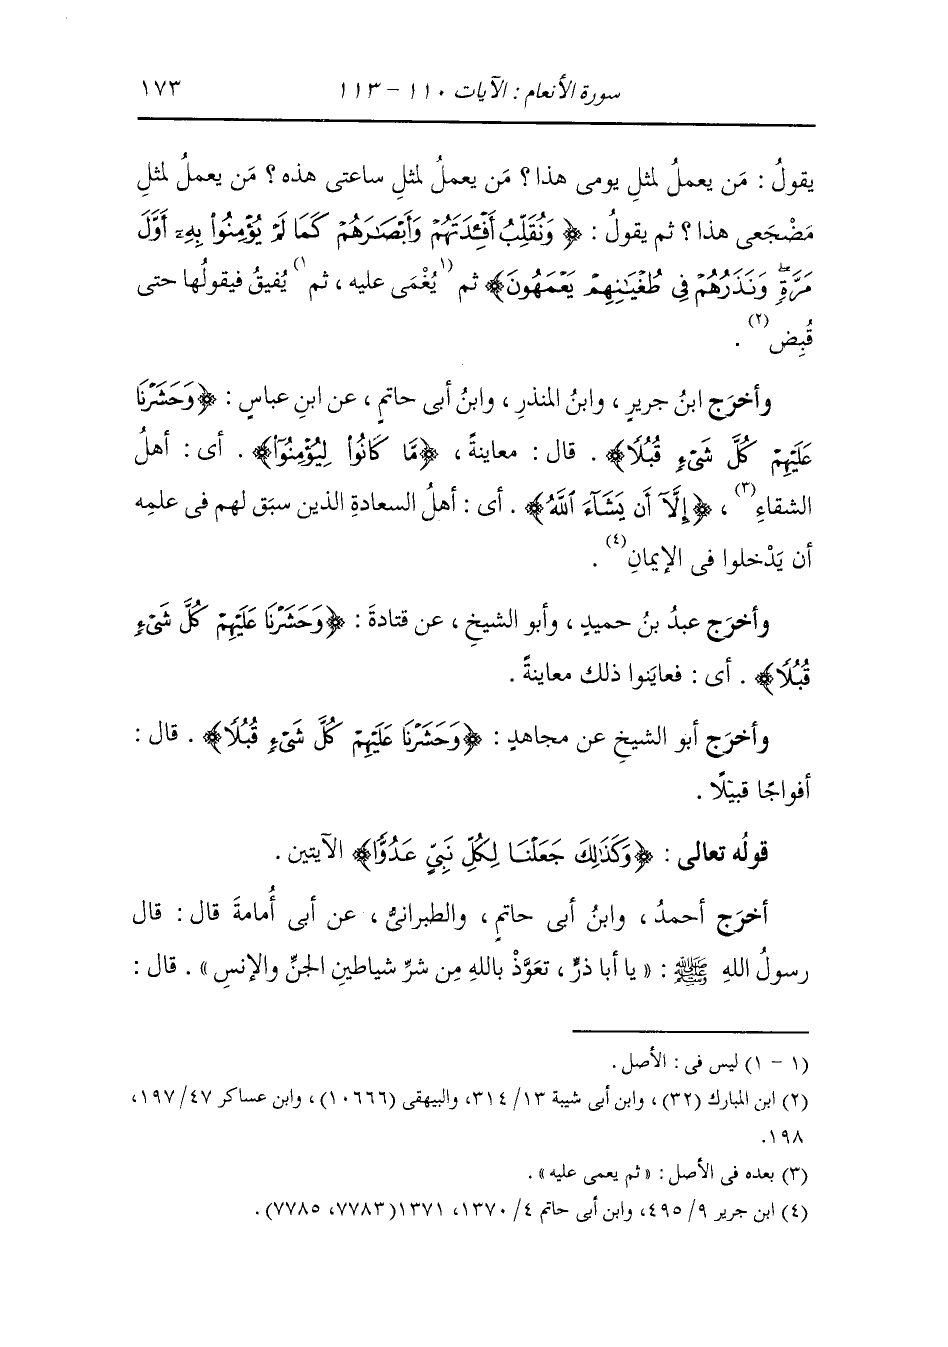 سورة الأنعام : الآيات ١١٠ - ١١٣ ١٧٣
يقولُ : مَن يعملُ لمثلِ يومى هذا ؟ مَن يعملُ لمثلِ ساعتى هذه ؟ مَن يعملُ لمثلِ
مَضْجَعى هذا ؟ ثم يقولُ : ﴿ وَنُقَلِّبُ أَفْـِٔدَتَهُمْ وَأَبْصَـٰرَهُمْ كَمَا لَمْ يُؤْمِنُوا۟ بِهِۦٓ أَوَّلَ
مَرَّةٍۢ وَنَذَرُهُمْ فِى طُغْيَـٰنِهِمْ يَعْمَهُونَ﴾ ثم (١يُغْمَى عليه ، ثم ١)يُفيقُ فيقولُها حتى
قُبِض(٢) .
وأخرَج ابنُ جريرٍ ، وابنُ المنذرِ ، وابنُ أبى حاتمٍ ، عن ابنِ عباسٍ : ﴿وَحَشَرْنَا
عَلَيْهِمْ كُلَّ شَىْءٍ قُبُلًا﴾ . قال : معاينةً ، ﴿مَّا كَانُوا۟ لِيُؤْمِنُوٓا۟﴾ . أى : أهلُ
الشقاءِ(٣) ، ﴿إِلَّآ أَن يَشَآءَ ٱللَّهُ﴾ . أى : أهلُ السعادةِ الذين سبَق لهم فى علمِه
أن يَدْخلوا فى الإيمانِ(٤) .
وأخرَج عبدُ بنُ حميدٍ ، وأبو الشيخِ ، عن قتادةَ : ﴿وَحَشَرْنَا عَلَيْهِمْ كُلَّ شَىْءٍ
قُبُلًا﴾ . أى : فعايَنوا ذلك معاينةً .
وأخرَج أبو الشيخِ عن مجاهدٍ : ﴿وَحَشَرْنَا عَلَيْهِمْ كُلَّ شَىْءٍ قُبُلًا﴾ . قال :
أفواجًا قبيلًا .
قولُه تعالى : ﴿وَكَذَٰلِكَ جَعَلْنَا لِكُلِّ نَبِىٍّ عَدُوًّا﴾ الآيتين .
أخرَج أحمدُ ، وابنُ أبى حاتمٍ ، والطبرانىُّ ، عن أبى أُمامةَ قال : قال
رسولُ اللهِ ﷺ : « يا أبا ذرٍّ ، تعَوَّذْ باللهِ مِن شرِّ شياطينِ الجنِّ والإنسِ » . قال :
(١ - ١) ليس فى : الأصل .
(٢) ابن المبارك (٣٢) ، وابن أبى شيبة ١٣/ ٣١٤، والبيهقى (١٠٦٦٦) ، وابن عساكر ٤٧/ ١٩٧،
١٩٨.
(٣) بعده فى الأصل : « ثم يعمى عليه » .
(٤) ابن جرير ٩/ ٤٩٥، وابن أبى حاتم ٤/ ١٣٧٠، ١٣٧١(٧٧٨٣، ٧٧٨٥) .